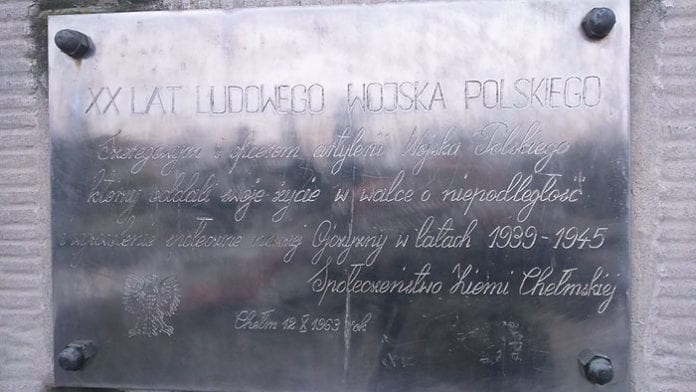 XX LAT LUDOWEGO WOJSKA POLSKIEGO
Szeregowym i oficerom artylerii Wojska Polskiego
którzy oddali swoje życie w walce o niepodległość
i wyzwolenie społeczne naszej Ojczyzny w latach 1939-1945
Społeczeństwo Ziemi Chełmskiej
Chełm 12 X 1963 rok